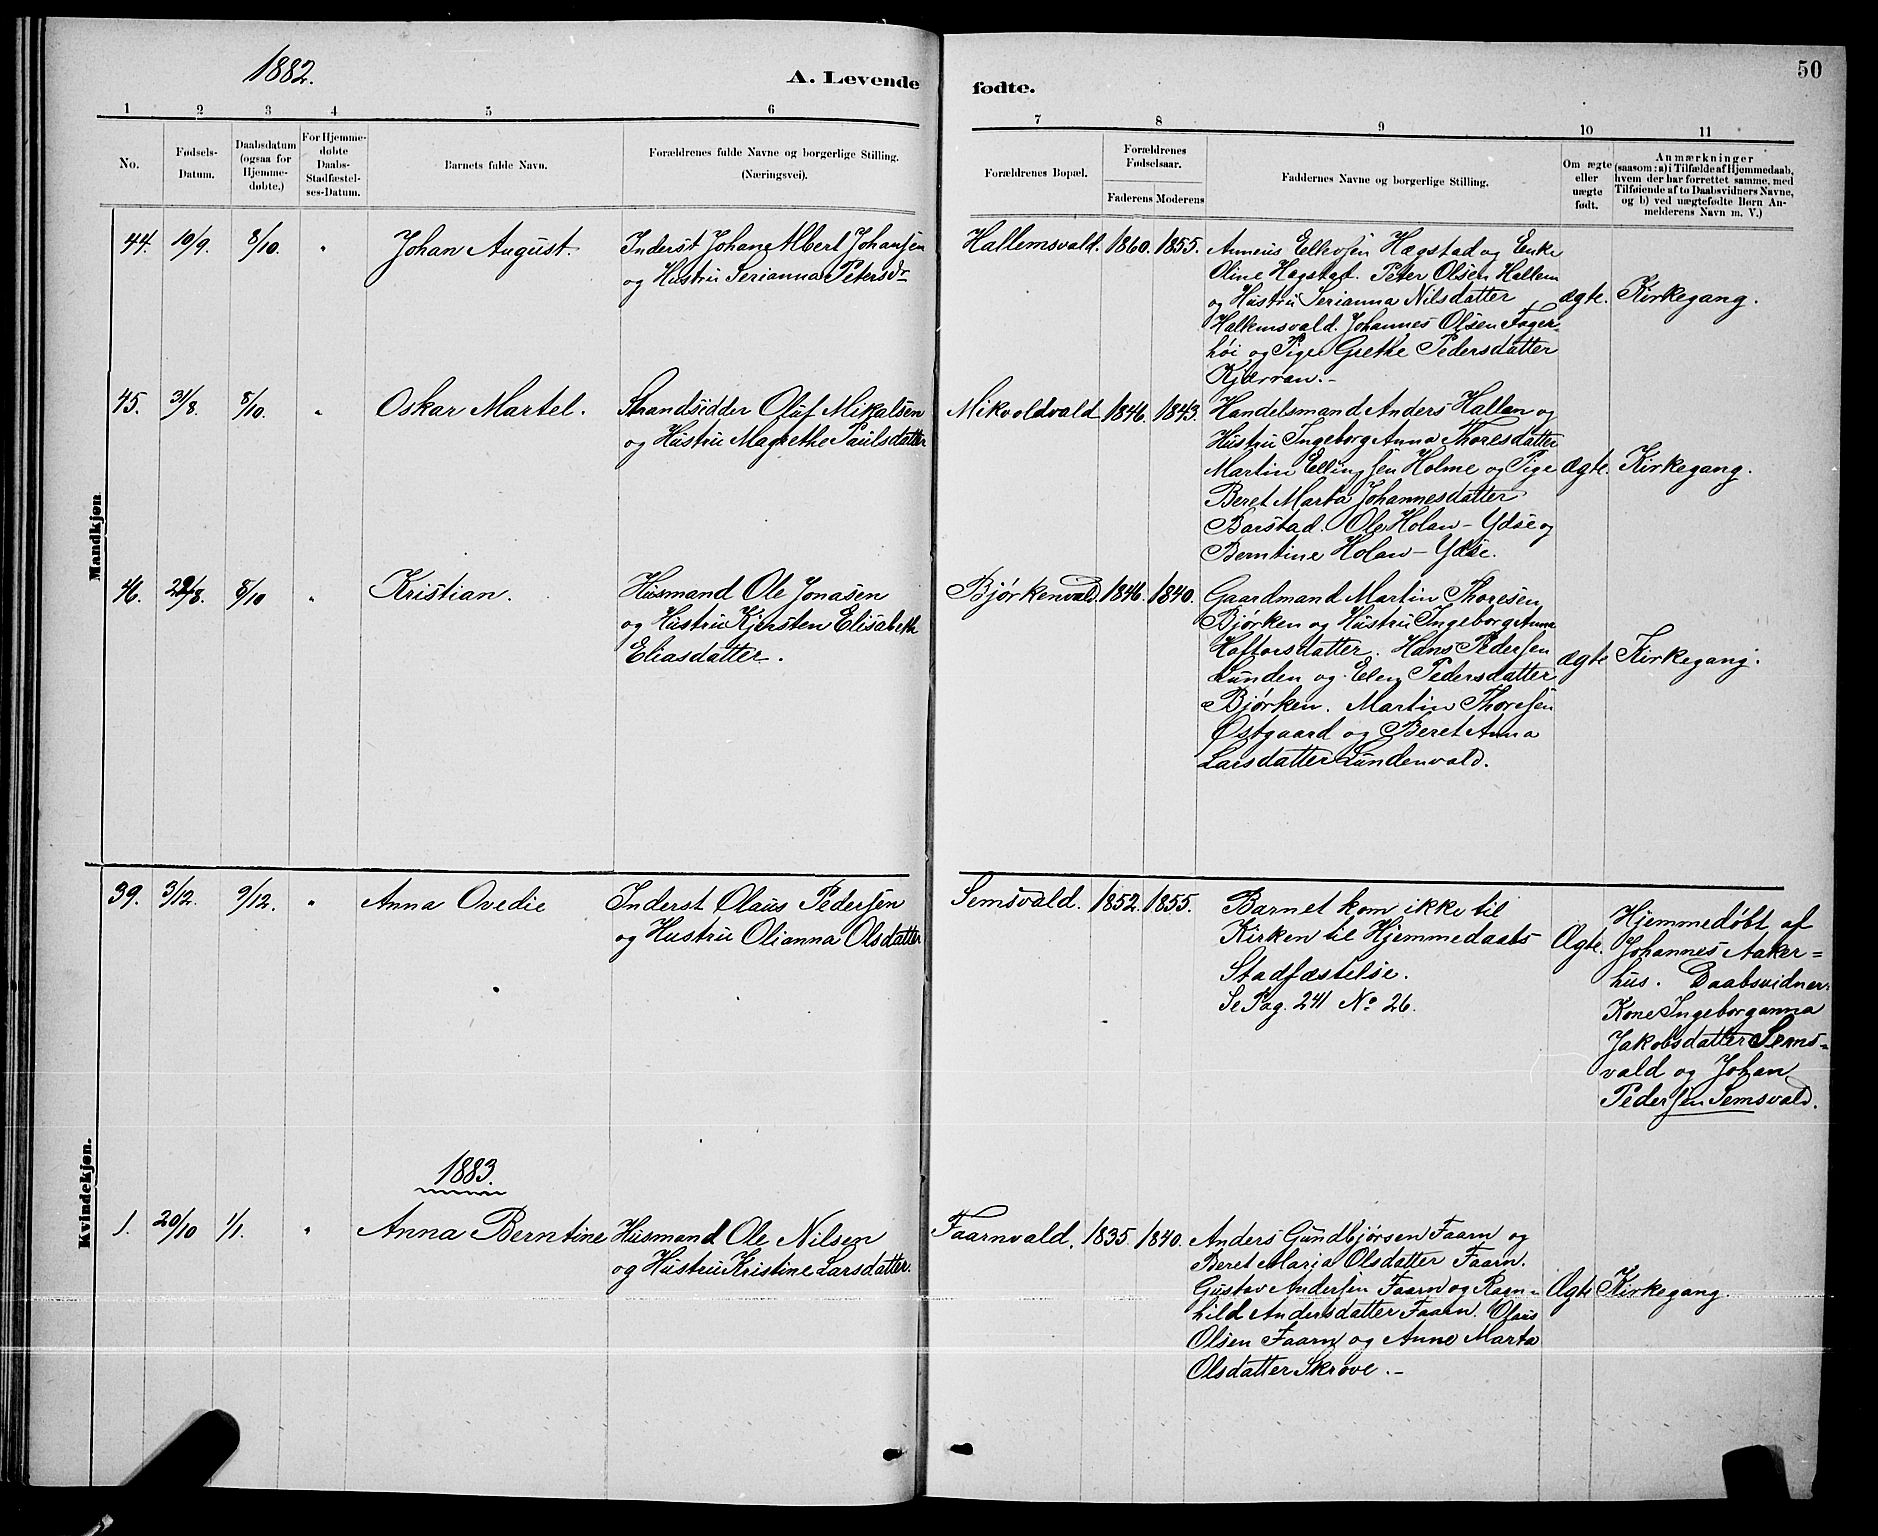 1882.
A. Levende fødte.
50
1 2 3 4 5 6 7 8 9 10 11
No.
Fødsels-
Datum.
Daabsdatum
(ogsaa for
Hjemme-
døbte.)
For Hjemme-
døbte
Daabs-
Stadfæstel-
ses-Datum.
Barnets fulde Navn.
Forældrenes fulde Navne og borgerlige Stilling.
(Næringsvei).
Forældrenes Bopæl.
Forældrenes
Fødselsaar.
Faderens Moderens
Faddernes Navne og borgerlige Stilling.
Om ægte
eller
uægte
født.
Anmærkninger
(saasom: a) i Tilfælde af Hjemmedaab,
hvem der har forrettet samme, med
Tilføiende af to Daabsvidners Navne,
og b) ved uægtefødte Børn An-
melderens Navn m. V.)
Mandkjøn.
44. 10/9. 8/10. "
Johan August.
Inderst Johan Albert Johansen
og Hustru Serianna Petersdr
Hallemsvald. 1860. 1855.
Anneus Ellevsen Hægstad og Enke
Oline Hagstad. Peter Olsen Hallem
og Hustru Serianna Nilsdatter
Hallemsvald. Johannes Olsen Fager-
høi og Pige Grethe Pedersdatter
Kjærran.-
ægte. Kirkegang.
45. 31/8. 8/10. "
Oskar Martel.
Strandsidder Oluf Mikalsen
og Hustru Magrethe Paulsdatter
Mikvoldvald 1846. 1843.
Handelsmand Anders Hallan og
Hustru Ingeborg Anna Thoresdatter
Martin Ellingsen Holme og Pige
Beret Marta Johannesdatter
Barstad. Ole Holan-Ydse og
Berntine Holan-Ydse.
ægte. Kirkegang.
46. 8/10 "
Kristian.
Husmand Ole Jonasen
og Hustru Kjersten Elisabeth
Eliasdatter.
Bjørkenvald. 1846. 1840.
Gaardmand Martin Thoresen
Bjørken og Hustru Ingeborg Anna
Haftorsdatter. Hans Pedersen
Lunden og Elen Pedersdatter
Bjørken. Martin Thoresen
Østgaard og Beret Anna
Larsdatter Lundenvald.
ægte Kirkegang.
Kvindekjøn.
39. 3/12. 9/12. "
Anna Ovedie
Inderst Olaus Pedersen
og Hustru Olianna Olsdatter
Semsvald. 1852. 1855.
Barnet kom ikke til
Kirken til Hjemmedaabs-
Stadfæstelse.
Se Pag. 241 No 26.
Ægte.
Hjemmedøbt af
Johannes Aaker=
hus. Daabsvidner:
Kone Ingeborganna
Jakobsdatter Sems-
vald og Johan
Pedersen Semsvald.
1883.
1. 20/10 1/1. "
Anna Berntine
Husmand Ole Nilsen
og Hustru Kristine Larsdatter.
Faarnvald. 1835. 1840.
Anders Gundbjørsen Faarn og
Beret Marja Olsdatter Faarn.
Gustav Andersen Faarn og Ragn-
hild Andersdatter Faarn. Olaus
Olsen Faarn og Anne Marta
Olsdatter Skrove.-
Ægte Kirkegang.